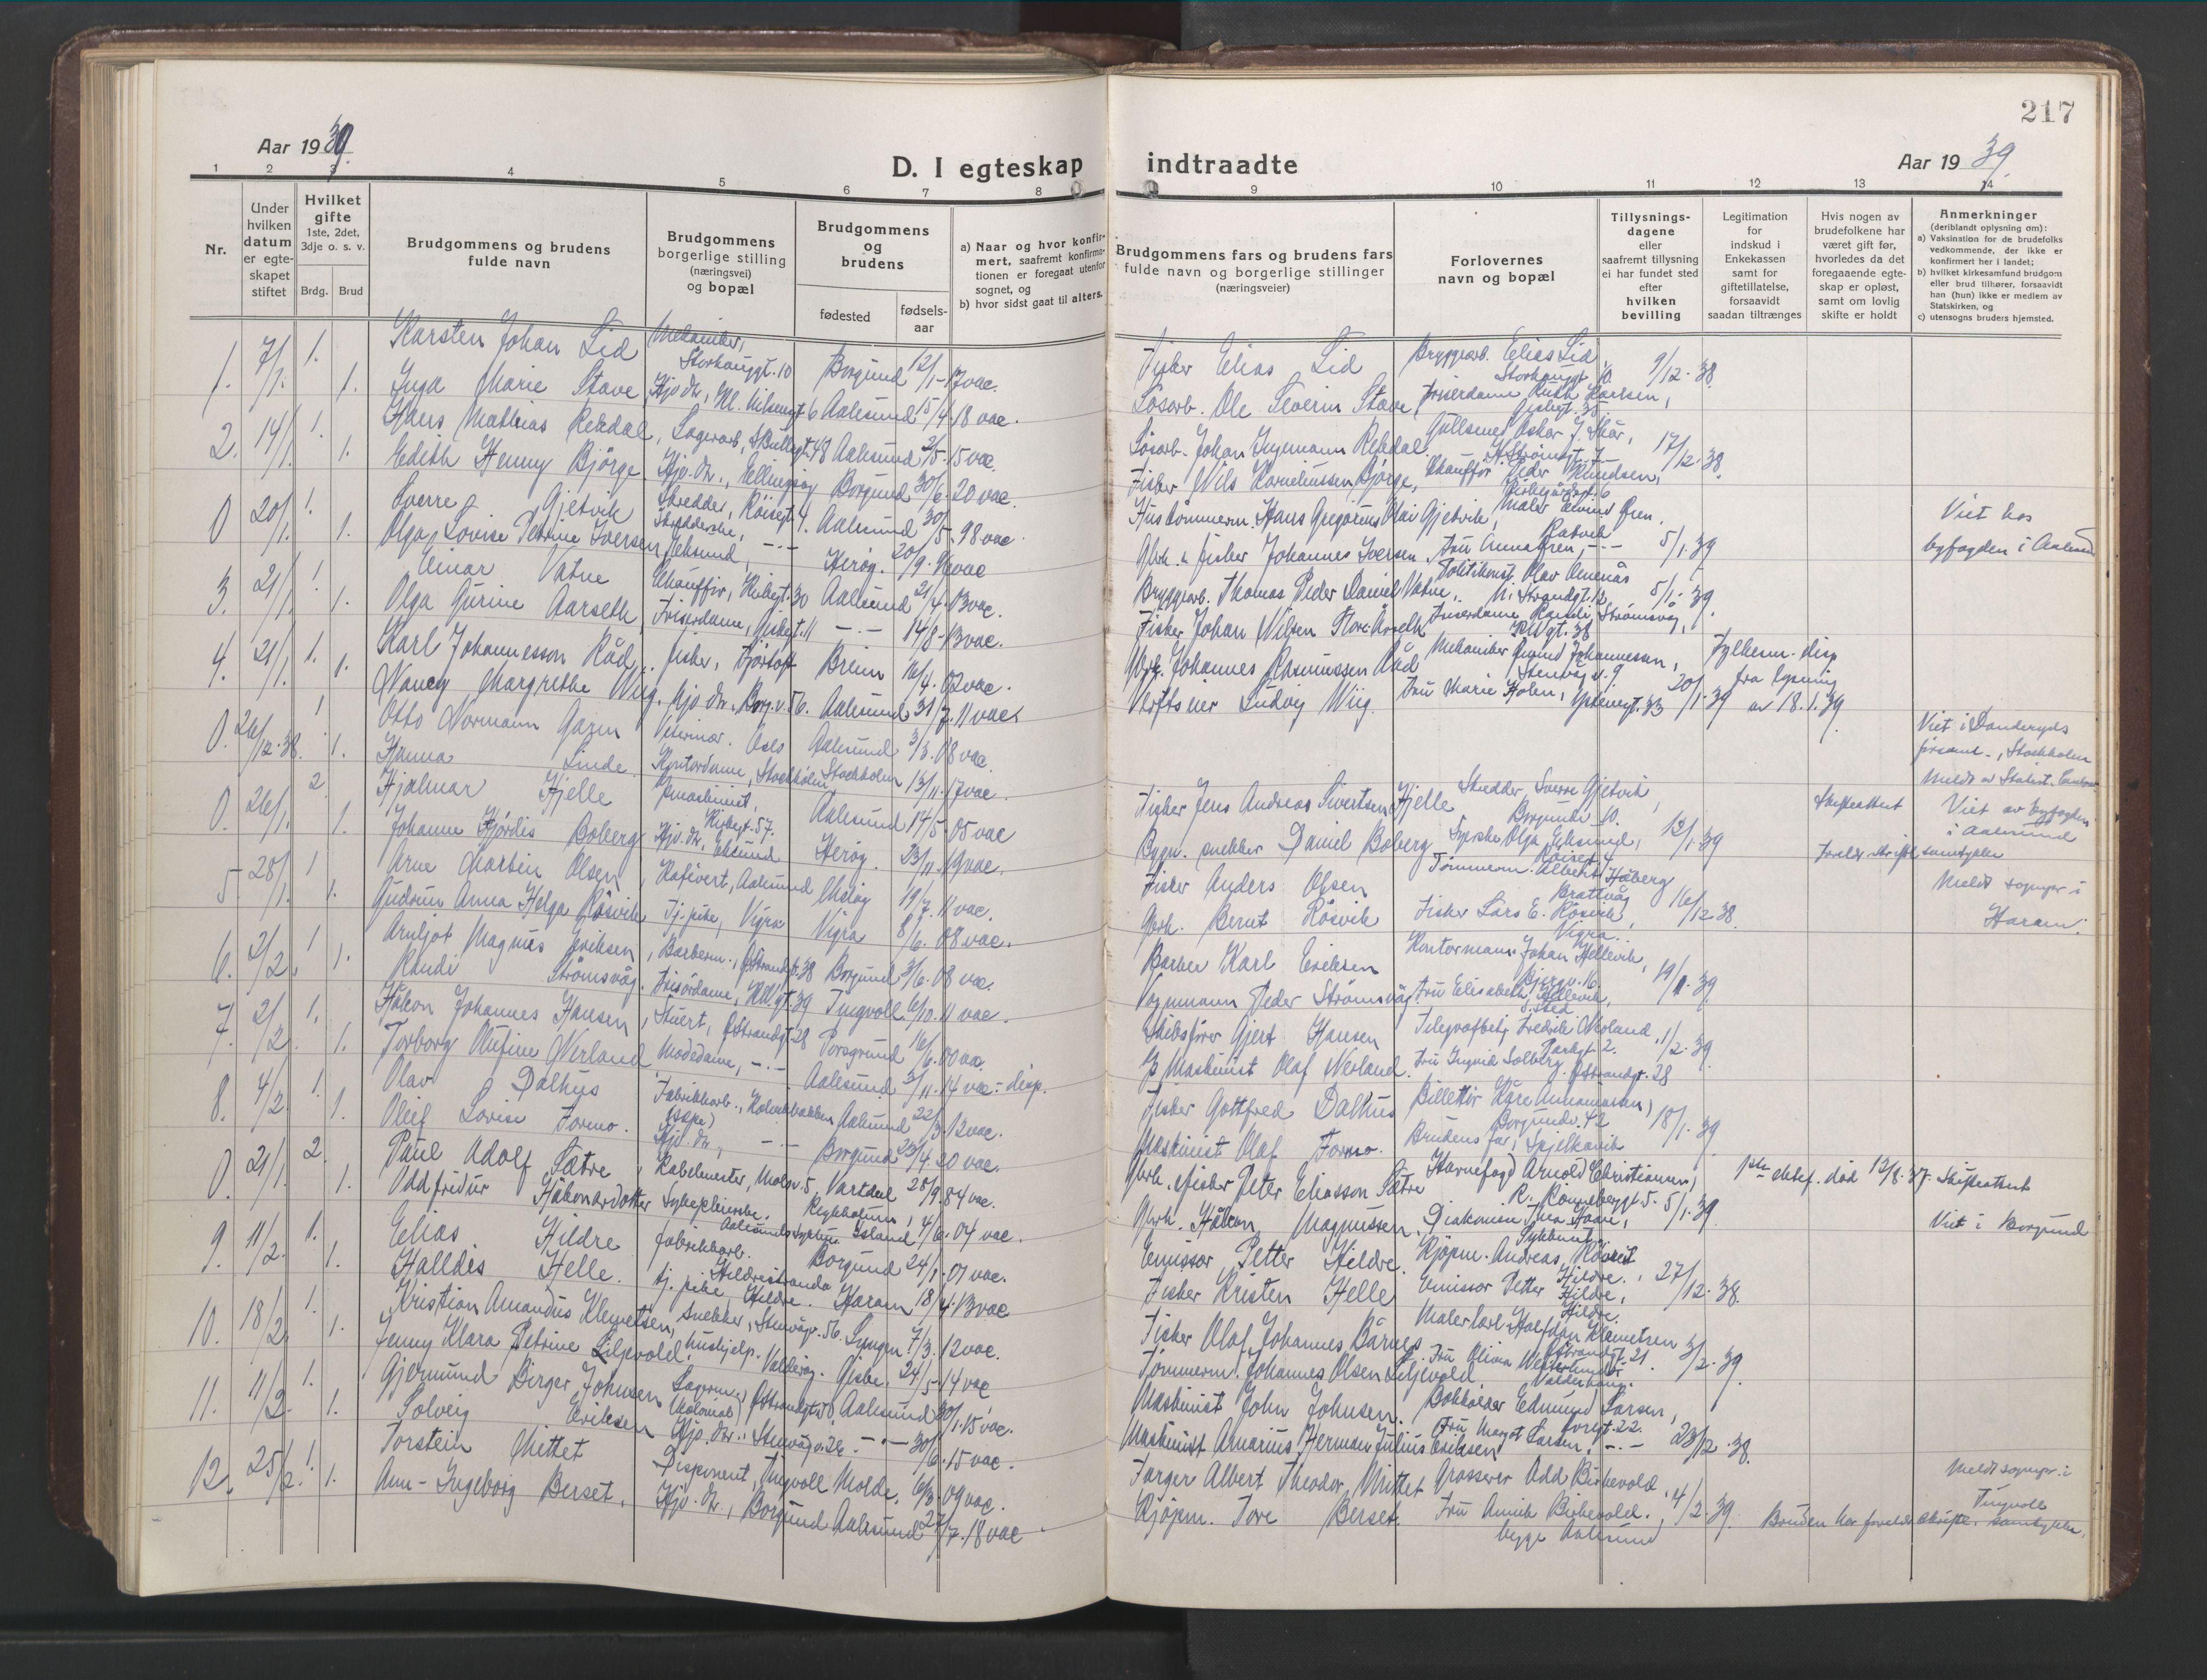 217
Aar 1939.
D. I egteskap indtraadte
Aar 1939.
1 2 3 4 5 6 7 8 9 10 11 12 13 14
Nr.
Under hvilken datum er egteskapet stiftet
Hvilket gifte 1ste, 2det, 3dje o. s. v.
Brdg. Brud
Brudgommens og brudens fulde navn
Brudgommens borgerlige stilling (næringsvei) og bopæl
Brudgommens og brudens
fødested
fødsels-aar
a) Naar og hvor konfirmert, saafremt konfirmationen er foregaat utenfor sognet, og
b) hvor sidst gaat til alters.
Brudgommens fars og brudens fars fulde navn og borgerlige stillinger (næringsveier)
Forlovernes navn og bopæl
Tillysningsdagene eller saafremt tillysning ei har fundet sted efter hvilken bevilling
Legitimation for indskud i Enkekassen samt for giftetillatelse, forsaavidt saadan tiltrænges
Hvis nogen av brudefolkene har været gift før, hvorledes da det foregaaende egteskap er opløst, samt om lovlig skifte er holdt
Anmerkninger (deriblandt oplysning om):
a) Vaksination for de brudefolks vedkommende, der ikke er konfirmert her i landet;
b) hvilket kirkesamfund brudgom eller brud tilhører, forsaavidt han (hun) ikke er medlem av Statskirken, og
c) utensogns bruders hjemsted.
1. 7/1. 1. Karsten Johan Lid Mekaniker, Storhauggt. 10 Borgund 12/1-17 vac. Fisker Elias Lid Bryggearb. Elias Lid, Storhauggt 10. 9/12.38.
1. Inga Marie Stave Hjv. dr, Nl. Nilsengt 6 Aalesund 15/4 18 vac. Løsarb. Ole Severin Stave Friserdame Ruth Karlsen,
2. 14/1. 1. Hans Mathias Rekdal, Lagerarb, 48 Aalesund 2/5-15 vac. Løsarb. Johan Ingemann Rekdal. Gullsmed Oskar J. Skår, 17/12.38.
1. Edith Henny Bjørge. Hjv. dr., Ellingsøy Borgund 30/6. 20 vac. Fisker Nils Korneliussen Bjørge, Chauffør Peder Knudsen,
0 20/1. 1. Sverre Gjetvik Skredder, Røisegt 4. Aalesund 30/5-98 vac. Hustømmerm. Hans Gregorius Olai Gjetvik, Maler Eivind Øren, 5/1.39 Viet hos
1. Olga Lovise Petrine Iversen Herøy. 20/9. vac Gbrk. & fisker Johannes Iversen. Fru Anna Øren, -"- byfogden i Aalesund
3. 21/1. 1. Einar Vatne Chauffør, Kirkegt. 30 Aalesund 21/4. 13 vac. Bryggearb. Thomas Peder Daniel Vatne, Politikonst. Olav Amenås N. Strandgt. 12, 5/1.39.
1. Olga Gurine Aarseth, Friserdame, Giskegt. 11 -"- 14/8-13 vac. Fisker Johan Nilsen Flore-Årseth Friserdame Randi Strømsvåg, KWgt. 38
4. 21/1. 1. Karl Johannesson Råd, fisker, Fjørtoft Breim 16/4. 02 vac. Gbrk. Johannes Rasmussen Råd Mekaniker Øivind Johannessen, Stenvåg v. 9 20/1-39 Fylkesm. disp fra lysning av 18.1.39.
1. Nancy Margrethe Wiig. Hjv dr. Borg. v. 56. Aalesund 31/7. 11 vac. Verftseier Ludvig Wiig. Fru Marie Holen,
0. 26/12.38. 1 Otto Normann Gazin Veterinær. Oslo Aalesund 3/3. 08 vac. Viet i Danderyds
1. Hanna Linde. Kontordame, Stockholm Stockholm 13/11. 17 vac. forsaml., Stockholm
0. 26/1. 2. Hjalmar Hjelle Pmaskinist, Kirkegt. 57. Aalesund 14/5-05 vac Fisker Jens Andreas Sivertsen Hjelle Skredder, Sverre Gjetvik, Borgundv. 10. 12/1-39 Skifteattest Viet av byfogden i Aalesund
1. Johanne Hjørdis Boberg Hjv. dr., Herøy. 23/11. 19 vac. Bygn. snekker Daniel Boberg Syerske Olga Foreldr. skriftl. samtykke
5 28/1. 1 Arne Martin Olsen, Kafévert, Aalesund 19/7. 11 vac. Fisker Anders Olsen Tømmerm. Albert Håberg Brattvåg 16/12 38. Meldt sognepr. i
1. Gudrun Anna Helga Røsvik Tj. pike, Vigra Vigra 8/6. 08 vac. Gbrk. Bernt Røsvik Fisker Lars E. Røsvik, Vigra. Haram.
6. 2/2. 1 Arnljot Magnus Eriksen, Barberm., Ø Strandgt. 38 Borgund 3/6. 08 vac. Barber Karl Eriksen Kontormann Johan Hellevik, 19/1.39.
1. Randi Strømsvåg. Frisørdame, KWgt. 39 Tingvoll 6/10. 11 vac. Vognmann Peder Strømsvåg. Fru Elisabeth Hellevik,
7. 2/2. 1. Håkon Johannes Hansen, Stuert, ØStrandgt. 28 Porsgrunn 16/6. 00 vac. Skibsfører Gjert Hansen Telegrafbetj. Fredrik Nerland, Parkgt. 2. 1/2.39.
1. Torborg Rufine Nerland Motedame, -"- Aalesund 3/11. 14 vac. - disp. Maskinist Olaf Nerland. Fru Ingrid Solberg. ØStrandgt. 28
8. 4/2. 1. Olav Dalhus Fabrikkarb., Aalesund 22/3. 12 vac. Fisker Gottfred Dalhus Billettør Kåre Annaniassen, Borgundv. 42 18/1.39.
1. Oleif Lovise Formo. Hjv. dr, -"- Borgund 23/4. 20 vac. Maskinist Olaf Formo. Brudens far, Spjelkavik
0. 21/1. 2. Paul Adolf Sætre, Kabelmester, Molov. 5, Vartdal 28/9. 84 vac. Gbrk. & fisker Peter Eliasson Sætre Havnefogd Arnold Christiansen, R. Rønnebergt. 5. 5/1.39. 1ste ektef. død 12/8.37. Skifteattest
1. Oddfridur Håkonardotter Sykepleierske, Aalesunds sykehus. Reykholum, Island 4/6. 04 vac. Gbrk. Håkon Magnussen, Diakonisse Viet i Borgund
9. 11/2. 1. Elias Hildre fabrikkarb. Hildrestranda Borgund 24/1. 07 vac. Emissær Petter Hildre. Kjøpm. Andreas Hildre, 27/12.38.
1. Halldis Helle. tj. pike, Hildre. Haram 18/4. 13 vac Fisker Kristen Helle Emissær Petter Hildre, Hildre.
10. 18/2. 1. Kristian Amandus Klemetsen, snekker, Stenvågv. 56. Lyngen 7/3. 12 vac. Fisker Olaf Johannes Bårnes Maler Karl Halfdan Klemetsen Ø Strandgt. 21. 3/2.39.
1. Jenny Klara Petrine Liljevold, hushjelp. Valderøy. Giske. 24/5-14 vac Tømmerm. Johannes Olsen Liljevold. Fru Olivia Westerlund
11. 11/2. 1. Gjermund Birger Johnsen Lagerm. (Kolonial) ØStrandgt. Aalesund 30/1.15 vac. Maskinist John Johnsen. Bokholder Edmund Larsen, 23/12.38.
1. Solveig Eriksen Hjv. dr., Stenvågv. 26. -"- 30/6. 15 vac. Maskinist Amarius Herman Julius Eriksen Fru Margot Larsen, -"-
12. 25/2. 1. Torstein Mittet Disponent, Tingvoll Molde. 6/3. 09 vac. Farger Albert Theodor Mittet Grosserer Odd Birkevold, 4/2 39. Meldt sognepr. i Tingvoll
1. Ann-Ingeborg Berset, Hjv. dr., Borgund Aalesund 27/7. 18 vac Kjøpm. Tore Berset. Fru Annik Birkevold. begge Aalesund Bruden har foreldr. skriftl. samtykke.